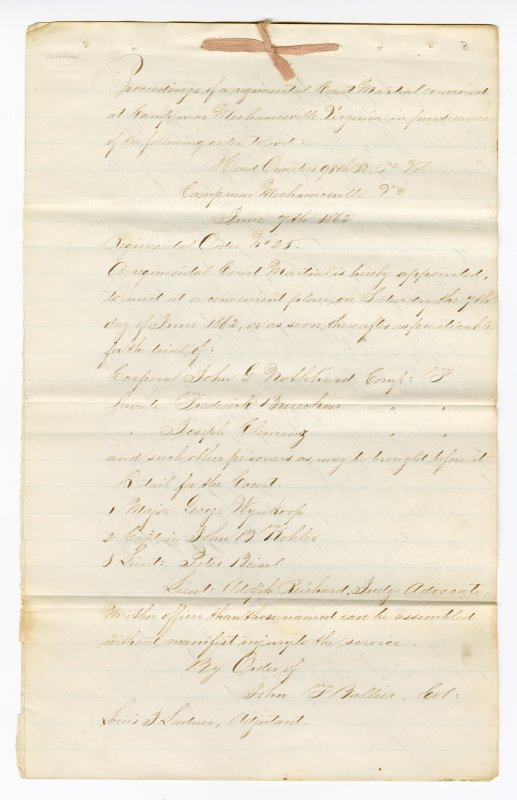 8
Proceedings of a regimental Court Martial convened
at Camp near Mechanicsville Virginia in pursuance
of the following order to wit:
Head Quarters 98th Rt. Pa. Vol.
Camp near Mechanicsville Va
June 7th 1862
Regimental Order No 25.
A regimental Court Martial is hereby appointed,
to meet at a convenient place, on Saturday the 7th
day of June 1862, or as soon thereafter as practicable
for the trial of:
Corporal John G Comp: F
Private Fredrick " "
" Joseph " "
and such other prisoners as may be brought before it
Detail for the Court.
1 Major George Wynkoop
2 Captain John W Kohler
3 Lieut: Peter Beisel
Lieut: Adolph Reichard, Judge Advocate.
No other officer than those named can be assembled
without manifest injury to the service.
By Order of
John F Ballier, Col:
Louis J Ladner, Adjutant.